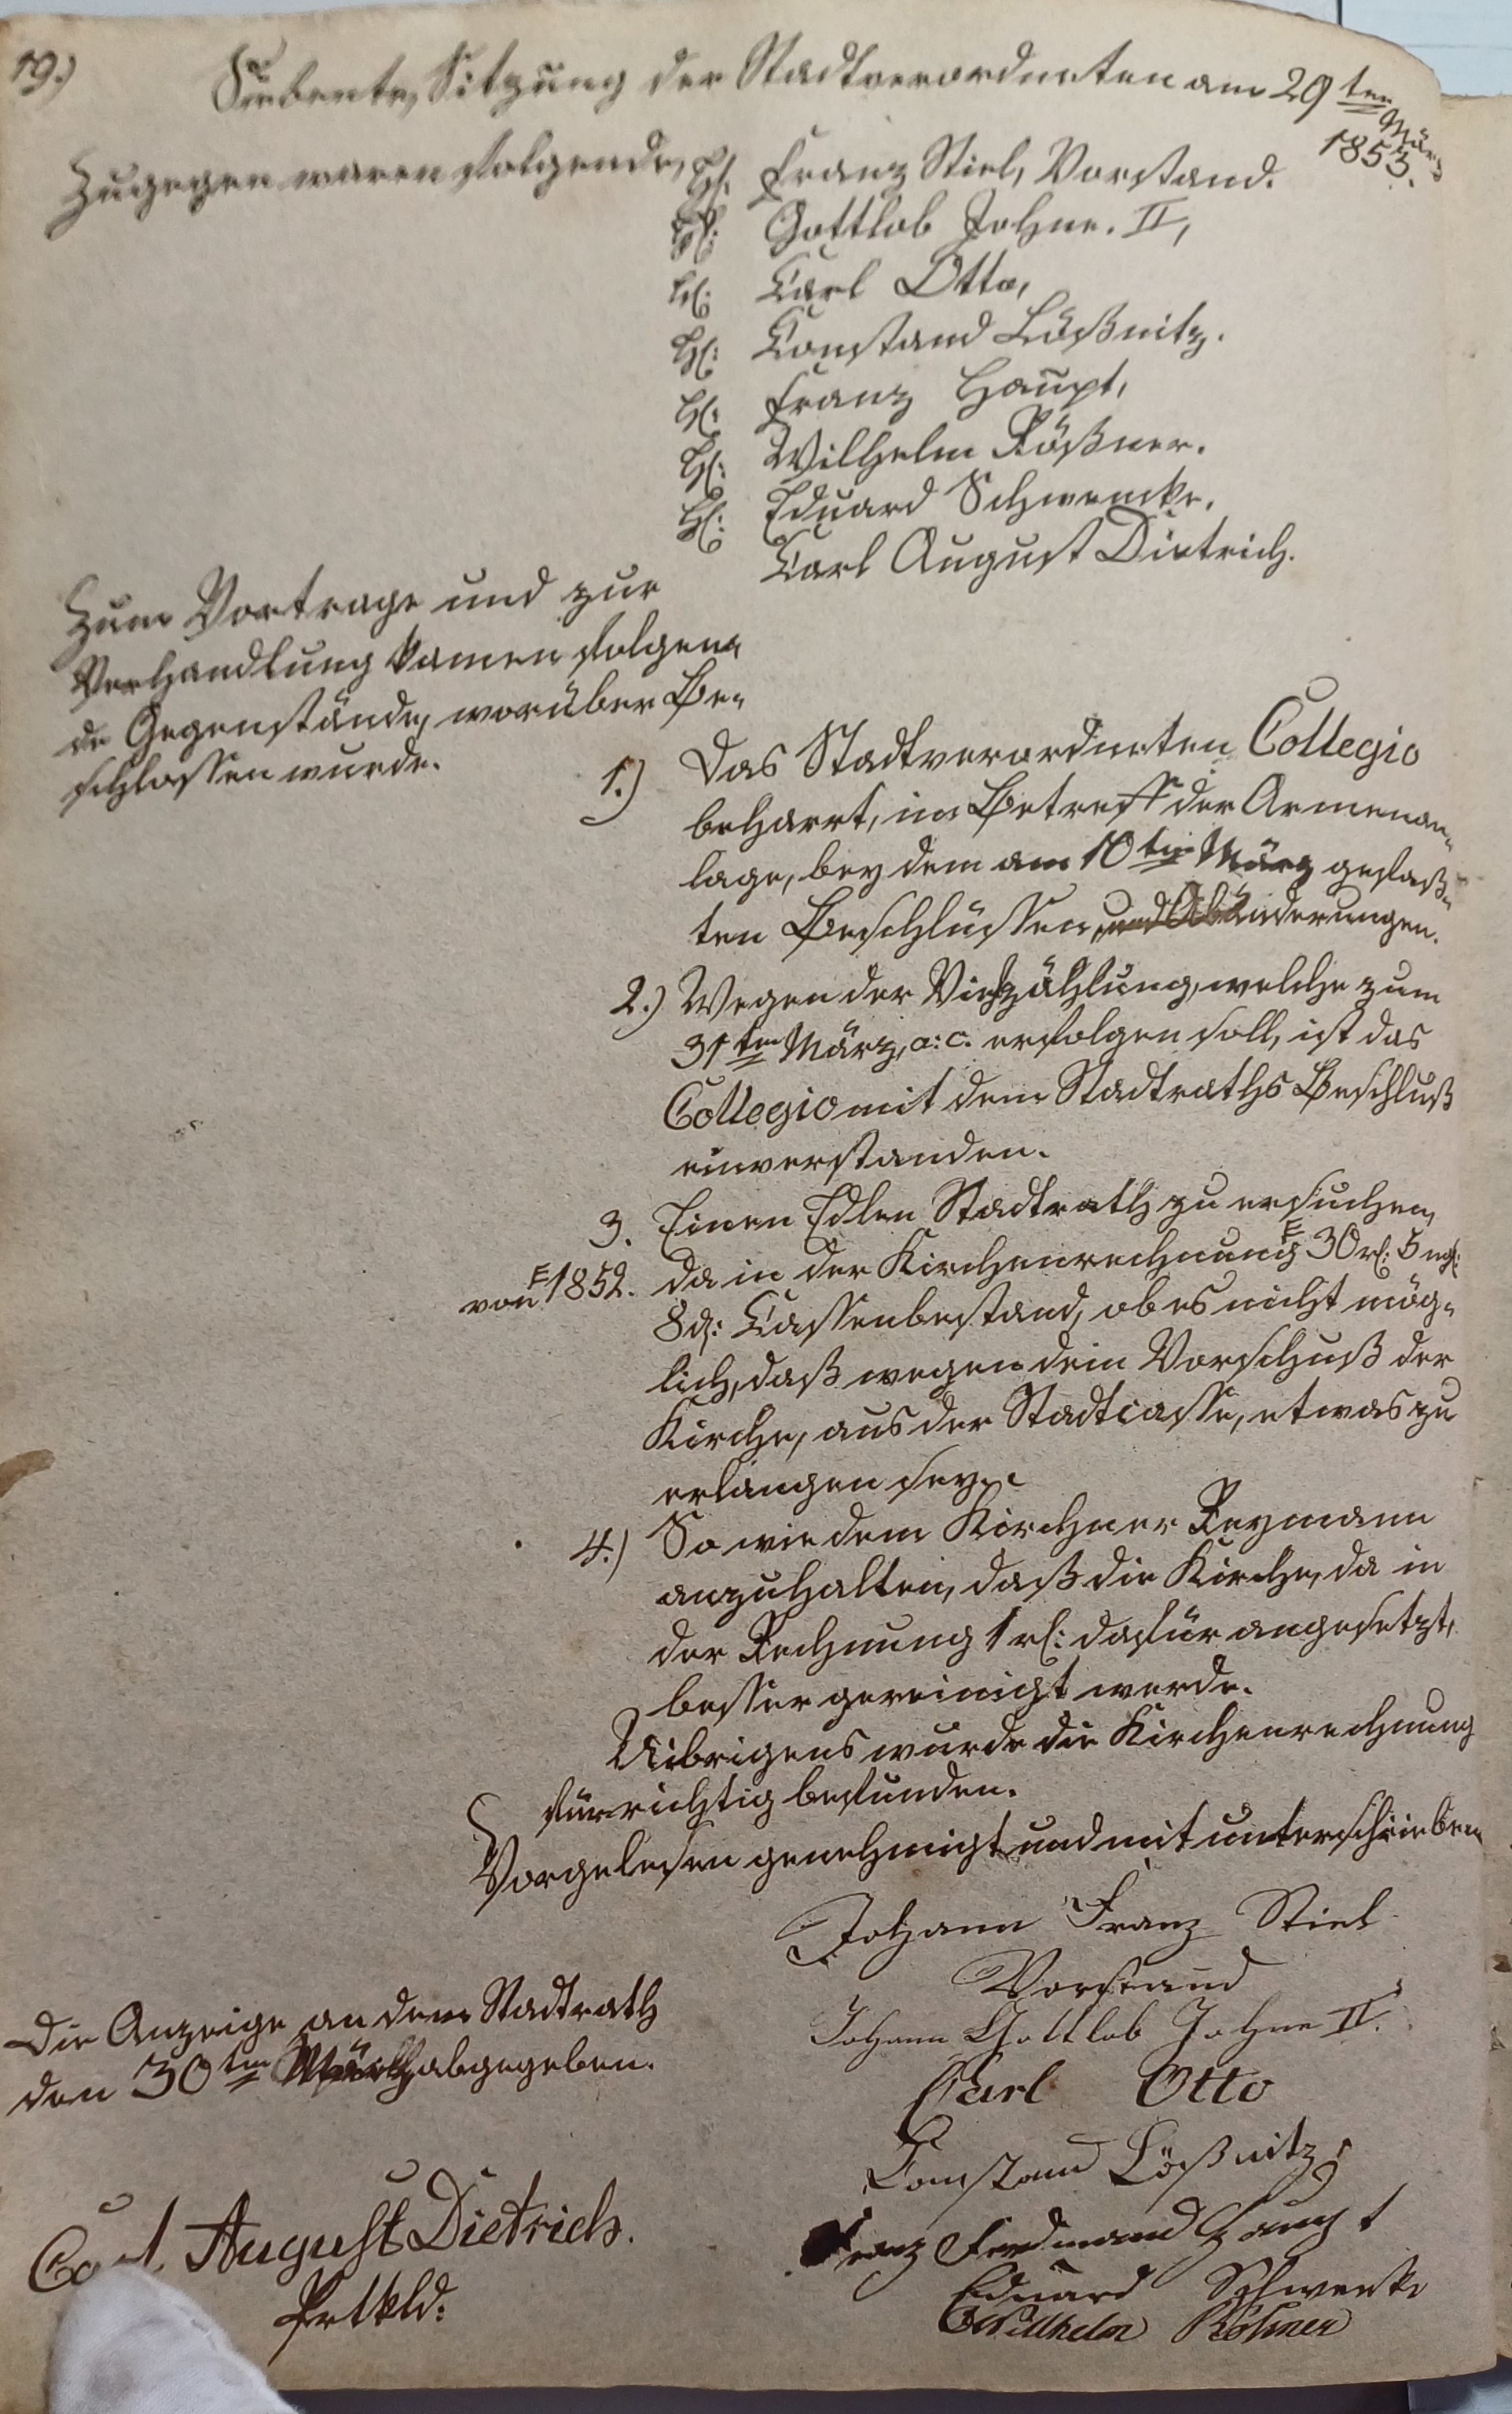 19.)
Siebente Sitzung der Stadtverordneten am 29ten März
1853.
Zugegen waren folgende, H: Franz Stiel, Vorstand.
H: Gottlob Johne. II,
H: Carl Otto,
H: Constand Lößnitz.
H: Franz Haupt,
H: Wilhelm Rößner.
H: Eduard Schwencke.
Carl August Dietrich.
Zum Vortrage und zur
Verhandlung kamen folgen-
de Gegenstände, worüber Be-
schlossen wurde.
1.) Das Stadtverordneten Collegio
beharrt, im Betreff der Armenan-
lage, bey dem am 10ten März gefaß-
ten Beschlüssen, und Abänderungen.
2.) Wegen der Viehzählung, welche zum
31ten März, a: c. erfolgen soll, ist das
Collegio mit dem Stadtraths Beschluß
einverstanden.
3. Einen Edlen Stadtrath zu ersuchen,
von 1852. da in der Kirchenrechnung 30 rl: 5 ngl:
8 d: Cassenbestand, ob es nicht mög-
lich, daß wegen dem Vorschuß der
Kirche, aus der Stadtcasse, etwas zu
erlangen sey.
4.) So wie dem Kirchner Reymann
anzuhalten, daß die Kirche, da in
der Rechnung 1 rl: dafür angesetzt,
besser gereinigt werde.
Uibrigens wurde die Kirchenrechnung
für richtig befunden.
Vorgelesen genehmigt und mit unterschrieben
Johann Franz Stiel
Vorstand
Johann Gottlob Johne II.
Carl Otto
Constand Lößnitz,
Franz Ferdinand Haupt
Eduard Schwenke
Willhelm Rößner
Die Anzeige an dem Stadtrath
den 30ten März abgegeben.
Carl August Dietrich.
Prtkld: